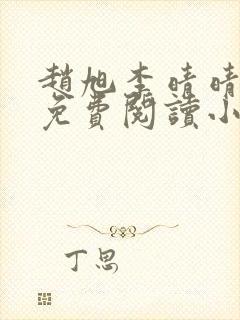 趙旭李晴晴
免費閱讀小
丁思